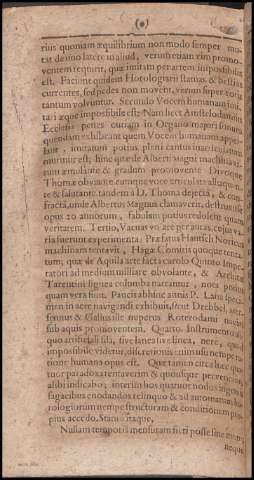 rius quoniam æquilibrium non modo semper mu-
tat de uno latere in aliud, verum etiam vim promo-
ventem requirit, quæ imitatu per artem impossibilis
est. Faciunt quidem Horologiarii statuas & bestias
currentes, sed pedes non movent, verum super rotis
tantum volvuntur. Secundo Vocem humanam imi-
tari æque impossibile est. Nam licet Amstelodami in
Ecclesia penes curam in Organo majori sonum
quendam exhibeant quem Vocem humanam appel-
lant, imitatur potius plani cantus
murmur est; hinc quæ de Alberti Magni machina vi-
rum æmulante & gradum promovente Divoque
Thomæ obviante eumque voce articulata alloquen-
te & salutante, tandem à D. Thoma dejecta, & con-
fracta, unde Albertus Magnus clamaverit, destruxisti
opus 20 annorum, fabulam potius redolent quam
veritatem. Tertio, Vacuas volare per auras, ejus va-
ria fuerunt experimenta. Præfatus Hautsch Noricus
machinam tentavit, Hagæ Comitum quoque tenta-
tum; quæ de Aquila arte facta Carolo Quinto Impe-
ratori ad medium milliare obvolante, & Architæ
Tarentini lignea columba narrantur, nota potius
quam vera sunt. Paucis abhinc annis P. Lana speci-
men in aere navigandi exhibuit, sicut Drebbel,
sennus & Gallus ille nuperus Roterodami navim
sub aquis promoventem. Quarto, Instrumentum
quo artis tali sila, sive lanea sive linea, nere,
impossibile videtur, discretionis enim usu ne
tione humana opus est. Quæ tamen circa hæc qua-
tuor paradoxa tentaverim & quousque pervenerim
alibi indicabo; interim hos quatuor nodos ingeniis
sagacibus enodandos relinquo & ad automatum ho-
rologiorum nempe structuram & conditionem pro-
pius accedo. Statuo itaque,
Nullam temporis mensuram fieri posse sine motu,
neque